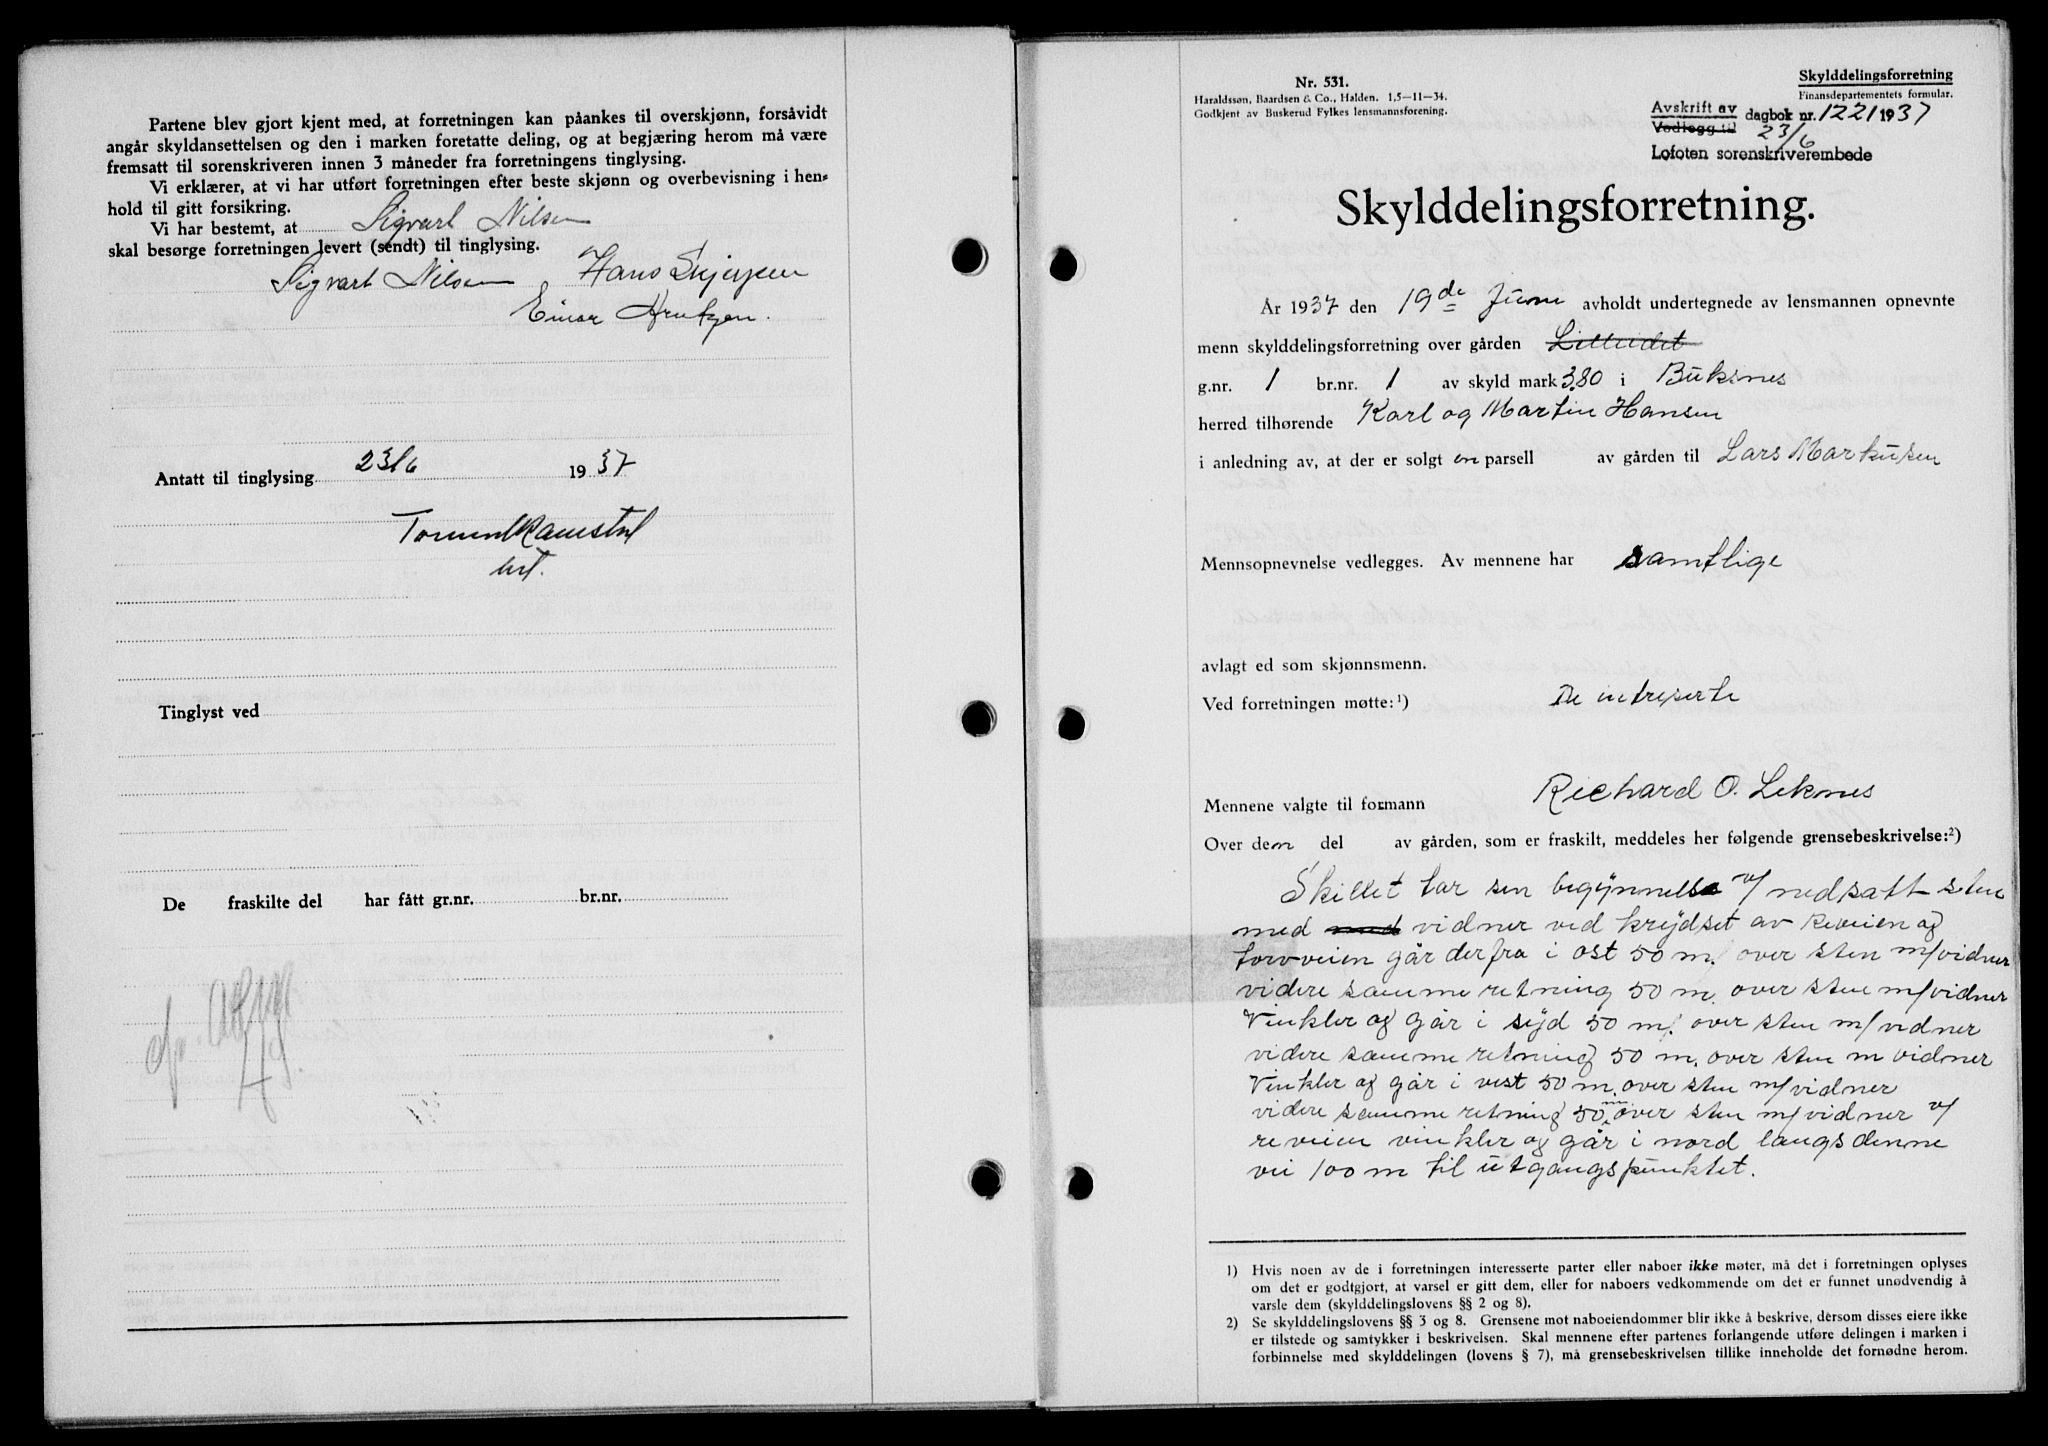 Partene blev gjort kjent med, at forretningen kan påankes til overskjønn, forsåvidt
angår skyldansettelsen og den i marken foretatte deling, og at begjæring herom må være
fremsatt til sorenskriveren innen 3 måneder fra forretningens tinglysing.
Vi erklærer, at vi har utført forretningen efter beste skjønn og overbevisning i hen-
hold til gitt forsikring.
Vi har bestemt, at Sigvart Nilsen
skal besørge forretningen levert (sendt) til tinglysing.
Sigvart Nilsen Hans
Einar
Antatt til tinglysing 23/6 1937
Tinglyst ved
De fraskilte del har fått gr.nr. br.nr.
Nr. 531.
Haraldssøn, Baardsen & Co., Halden. 1,5—11—34.
Godkjent av Buskerud Fylkes lensmannsforening.
Skylddelingsforretning
Finansdepartementets formular.
Avskrift av
Vedlegg til
dagbok nr. 1221 1937
23/6
Lofoten sorenskriverembede
Skylddelingsforretning.
År 1937 den 19de Juni avholdt undertegnede av lensmannen opnevnte
menn skylddelingsforretning over gården Lilleeidet
g.nr. 1 br.nr. 1 av skyld mark 3.80 i Buksnes
herred tilhørende Karl og Martin Hansen
i anledning av, at der er solgt en parsell av gården til Lars Markusen
Mennsopnevnelse vedlegges. Av mennene har samtlige
avlagt ed som skjønnsmenn.
Ved forretningen møtte:¹) De intreserte
Mennene valgte til formann Richard O. Leknes
Over den del av gården, som er fraskilt, meddeles her følgende grensebeskrivelse:²)
Skillet tar sin begynnelse v/ nedsatt sten
med med vidner ved krydset av Reveien og
torvveien går derfra i ost 50 m. over sten m/vidner
videre samme retning 50 m. over sten m/vidner
Vinkler og går i syd 50 m. over sten m/vidner
videre samme retning 50 m. over sten m vidner
Vinkler og går i vest 50 m. over sten m/vidner
videre samme retning 50 m. over sten m/vidner v/
reveien vinkler og går i nord langs denne
vei 100 m til utgangspunktet.
1) Hvis noen av de i forretningen interesserte parter eller naboer ikke møter, må det i forretningen oplyses
om det er godtgjort, at varsel er gitt dem, eller for naboers vedkommende om det er funnet unødvendig å
varsle dem (skylddelingslovens §§ 2 og 8).
2) Se skylddelingslovens §§ 3 og 8. Grensene mot naboeiendommer blir ikke å beskrive, dersom disses eiere ikke
er tilstede og samtykker i beskrivelsen. Skal mennene efter partenes forlangende utføre delingen i marken i
forbinnelse med skylddelingen (lovens § 7), må grensebeskrivelsen tillike inneholde det fornødne herom.